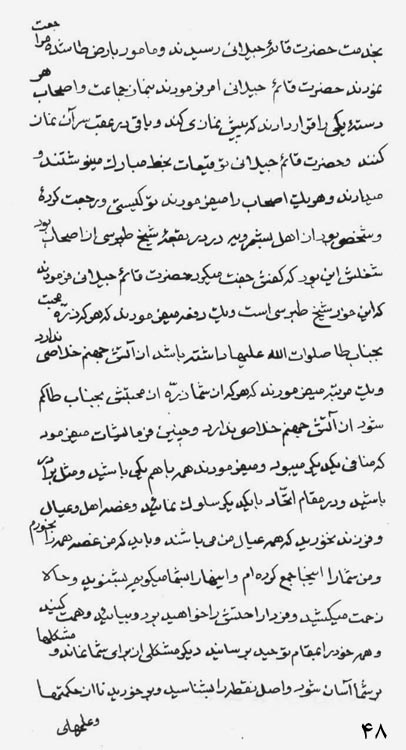 بخدمت حضرت قائم جیلانی رسیدند و مامور بارض طا شده مراجعت
نمودند حضرت قائم جیلانی امر فرمودند بنماز جماعت و اصحاب هر
دستهٔ یکی را قرار دارند که پیش نمازی کند و باقی در عقب سر آن نماز
کنند و حضرت قائم جیلانی توقیعات بخط مبارک مینوشتند و
میدادند و هر یک اصحاب را میفرمودند تو کیستی و رجعت کردهٔ
و شخصی بود از اهل بشرویه در در بقعهٔ شیخ طبرسی از اصحاب بود
شغلش این بود که کفش جفت میکرد حضرت قائم جیلانی فرمودند
که این مرد شیخ طبرسی است و یک دفعه میفرمودند که هر که ذرّهٔ محبت
بجناب طا صلوات الله علیها داشته باشد از آتش جهنم خلاصی ندارد
و یک مرتبه میفرمودند که هر که از شما ذرّه از محبتش بجناب طا کم
شود از آتش جهنم خلاصی ندارد و چنین فرمایشات میفرمود
که منافی یکدیگر میبود و میفرمودند همه با هم یکی باشید و مثل برادر
باشید و در مقام اتّحاد با یکدیگر سلوک نمائید و غصه اهل و عیال
و فرزند نخورید که همه عیال من می باشند و باید که من غصه همه را بخورم
و من شما را اینجا جمع کرده ام و اینها را بشما میگویم بشنوید و حالا
زحمت میکشید و فردا راحتش را خواهید برد و بیائید و همت کنید
و همه خود را بمقام توحید برسانید دیگر مشکلی از برای شما نماند و مشکلها
بر شما آسان شود و اصل نقطه را بشناسید و بر خورید تا از حکمتها
و علمهای
۴۸